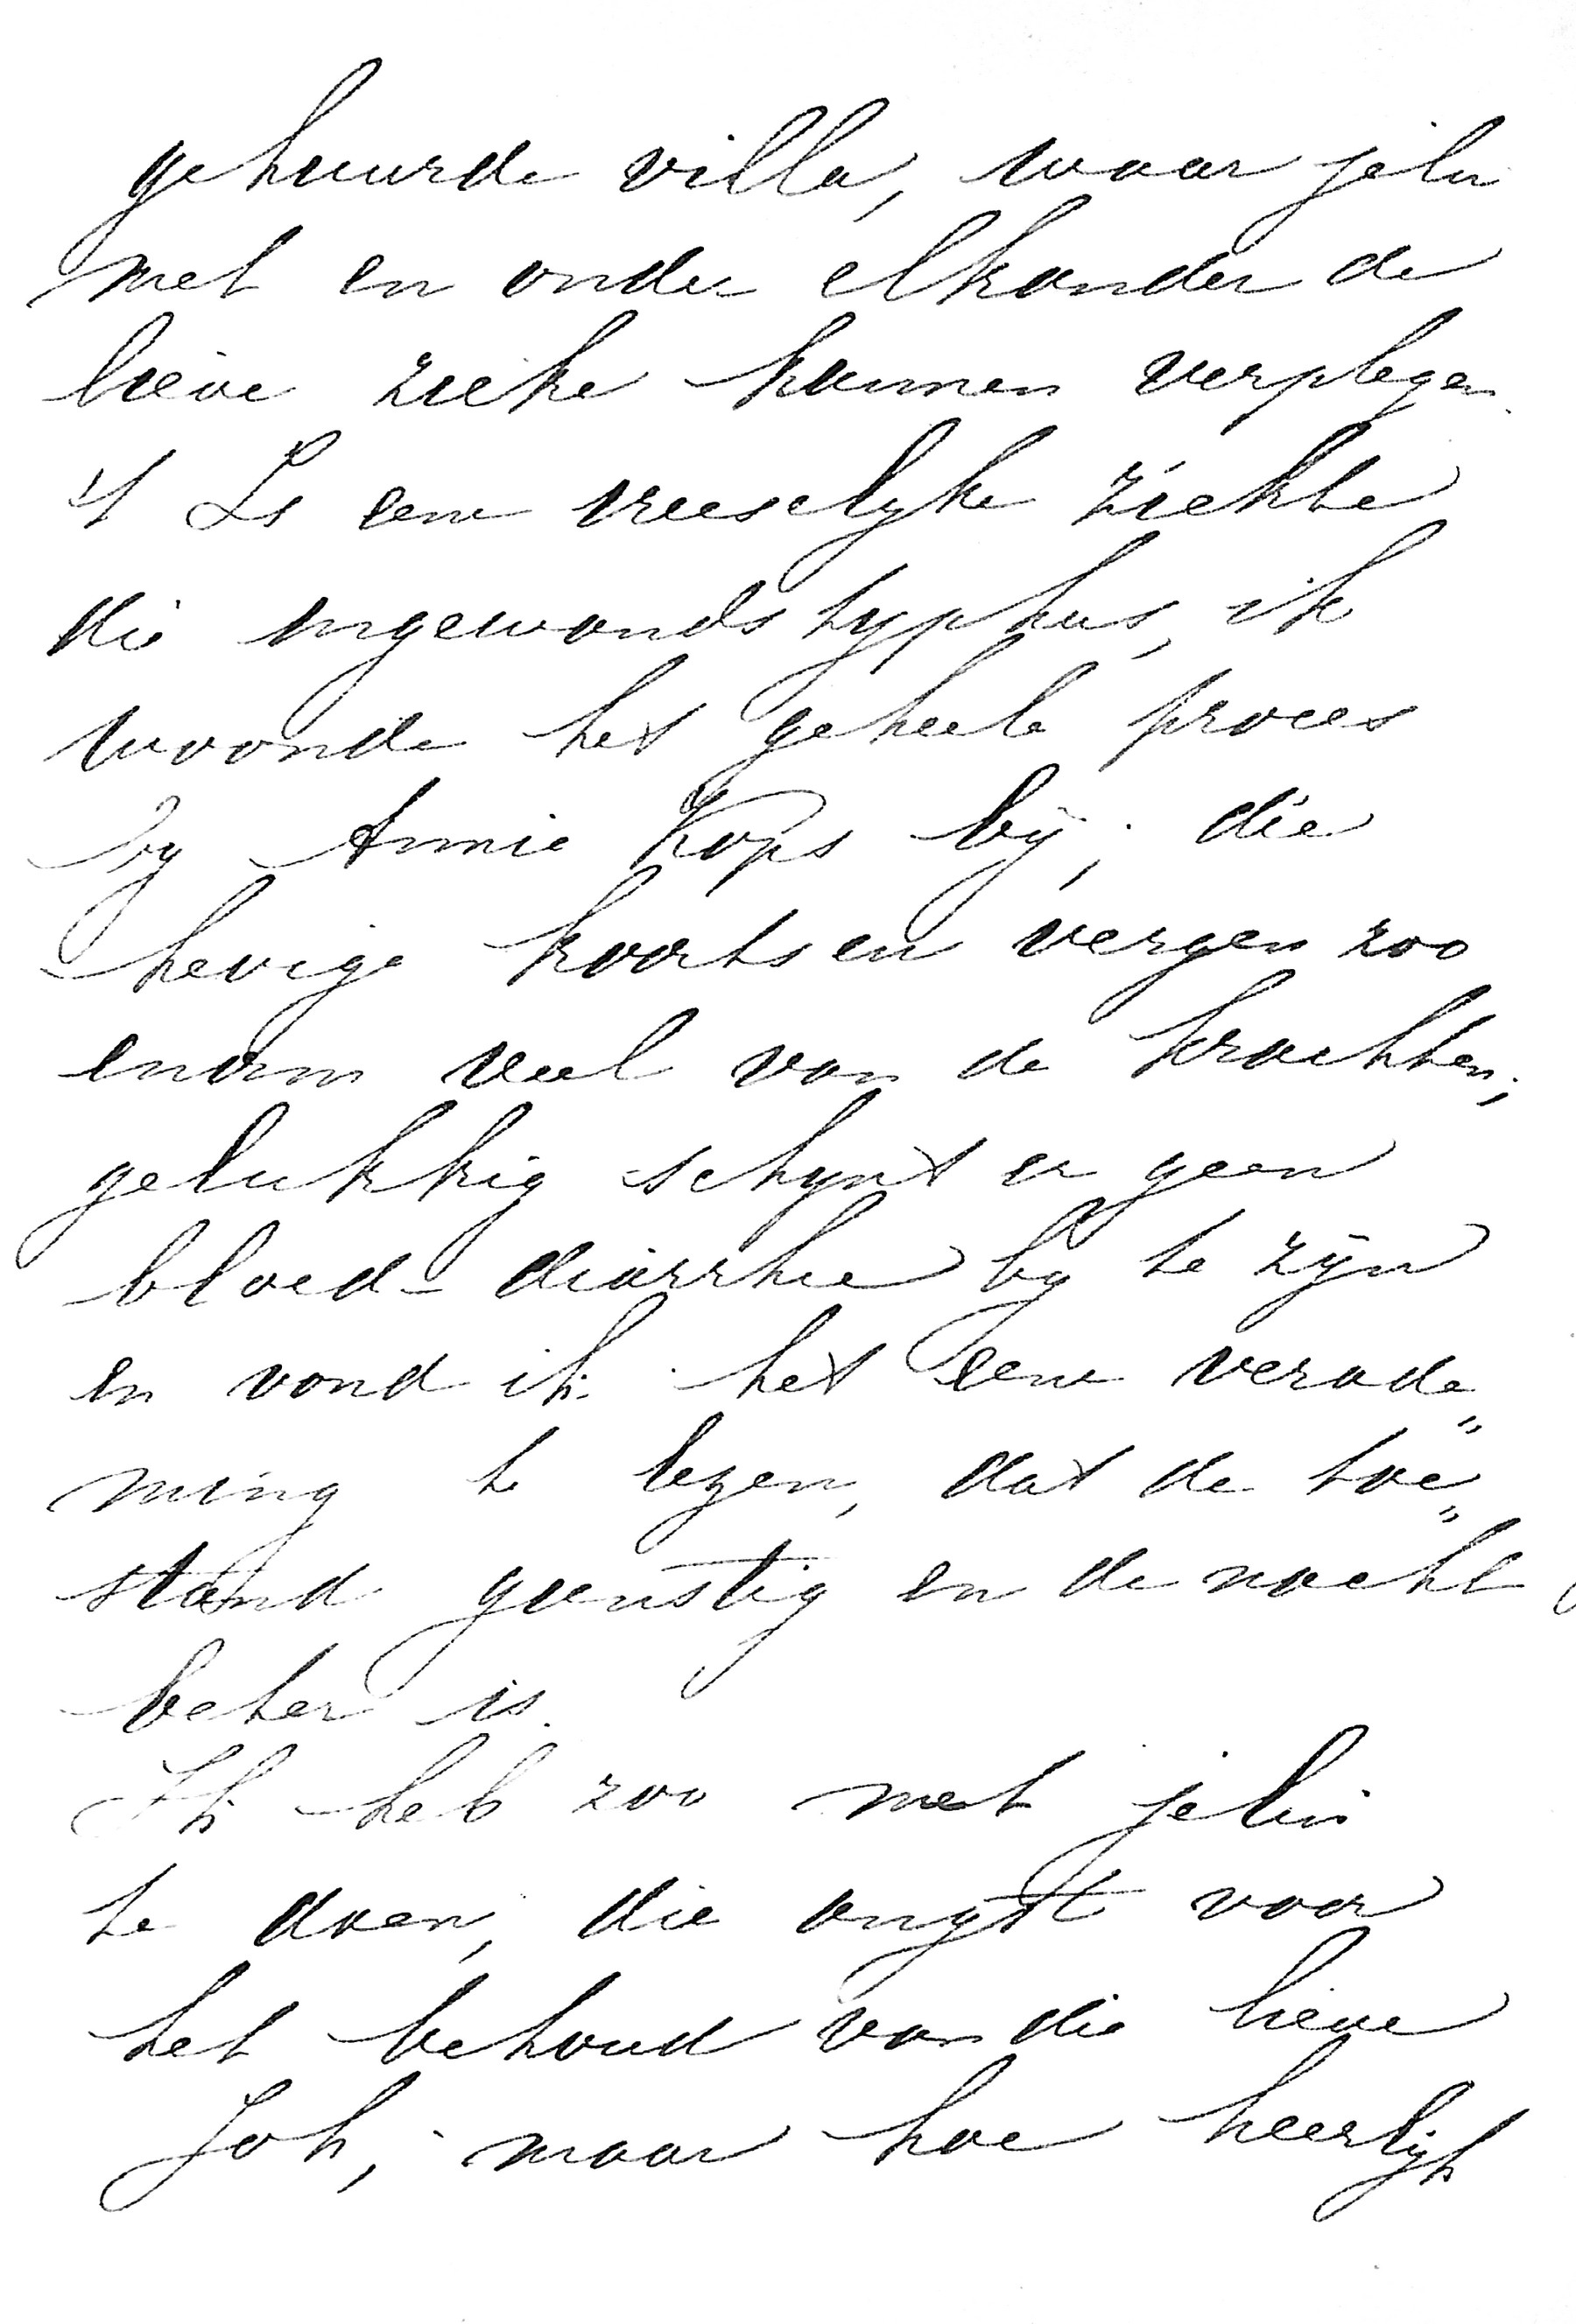 gehuurde villa, waar jelui
met en onder elkander de
lieve zieke kunnen verplegen.
't Is eene vreeselyke ziekte
die ingewands typhus, ik
woonde het geheele proces
by Annie Kops bÿ; die
hevige koortsen vergen zoo
enorm veel van de krachten;
gelukkig schynt er geen
bloed-diarrhee by te zÿn
en vond ik het eene verade„
ming te lezen, dat de toe„
stand gunstig en de nacht
beter is.
Ik heb zoo met jelui
te doen, die angst voor
het behoud van die lieve
Joh, maar hoe heerlijk